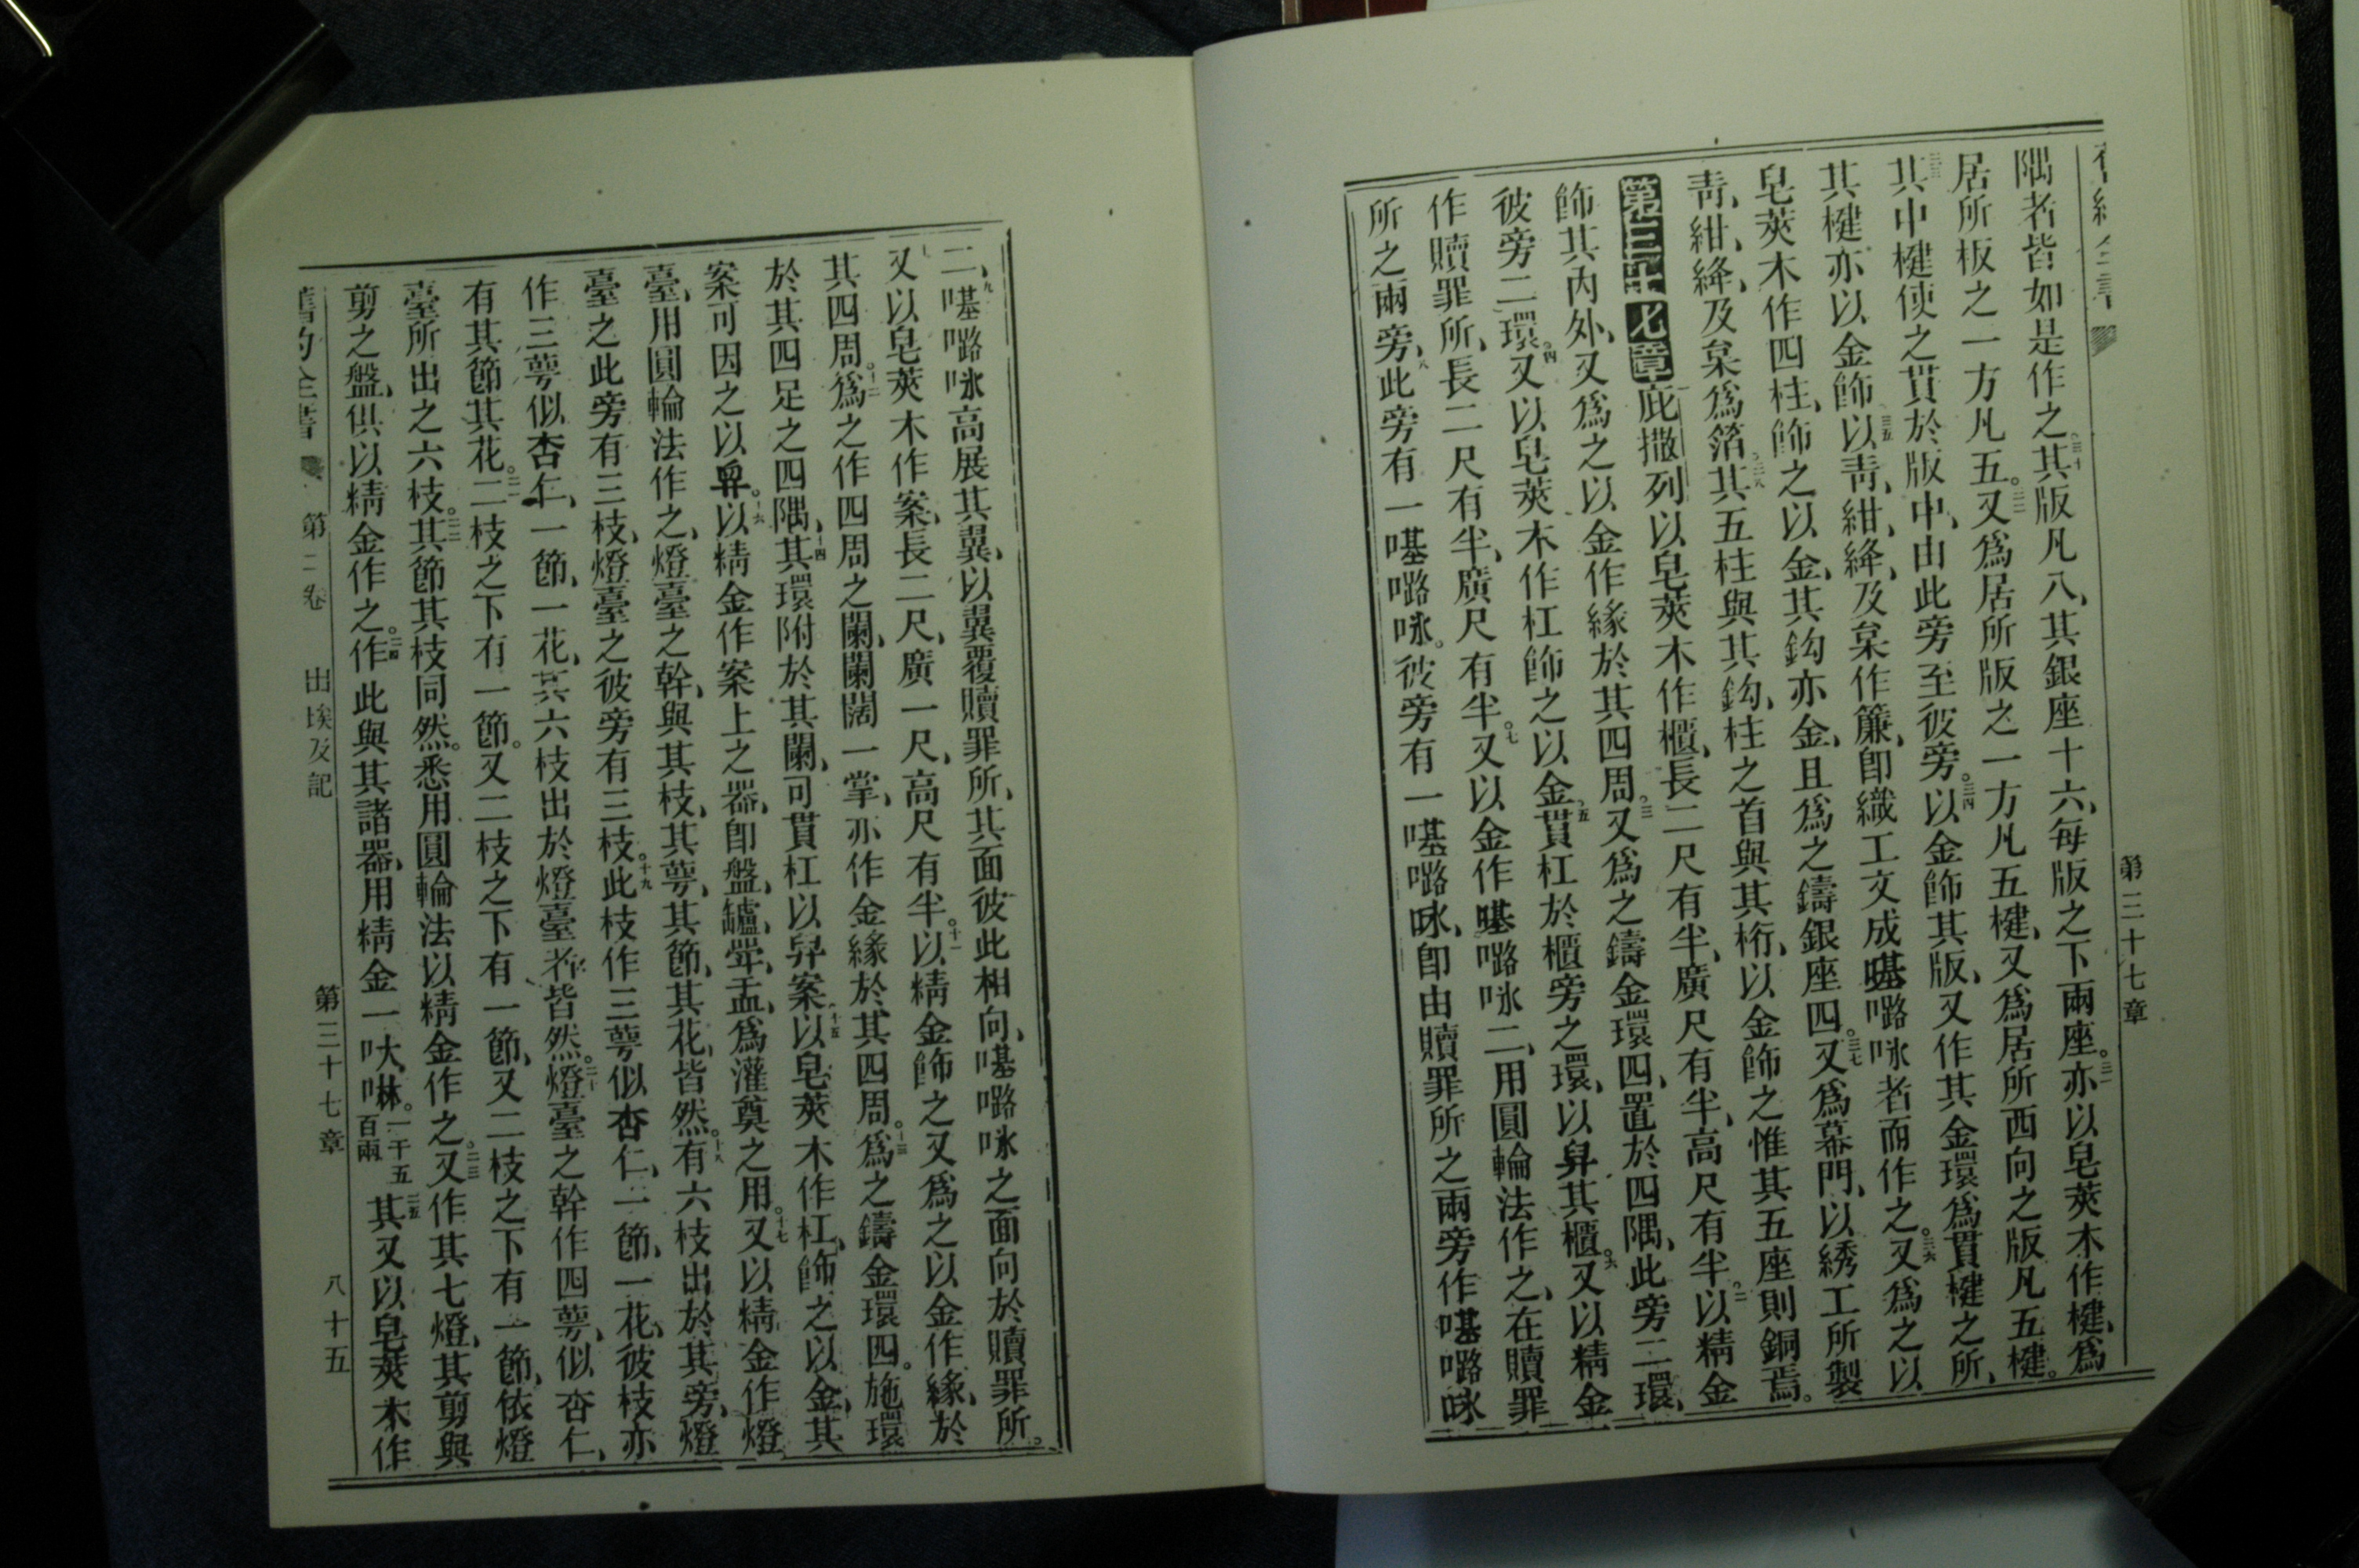 第三十七章
隅者皆如是作之。三十其版凡八、其銀座十六、每版之下兩座。三一亦以皂莢木作楗、爲
居所板之一方凡五。三二又爲居所版之一方凡五楗、又爲居所西向之版凡五楗。
三三其中楗使之貫於版中、由此旁至彼旁。三四以金飾其版、又作其金環爲貫楗之所、
其楗亦以金飾三五以靑、紺、絳、及枲作簾、卽織工文成𠸄嚕㖼者而作之。三六又爲之以
皂莢木作四柱、飾之以金、其鈎亦金、且爲之鑄銀座四。三七又爲幕門、以綉工所製
靑、紺、絳、及枲爲箔。三八其五柱與其鈎、柱之首與其桁、以金飾之惟其五座則銅焉。
第三十七章 庇撒列以皂莢木作櫃、長二尺有半、廣尺有半、高尺有半。二以精金
飾其內外、又爲之以金作緣於其四周。三又爲之鑄金環四、置於四隅、此旁二環、
彼旁二環。四又以皂莢木作杠飾之以金。五貫杠於櫃旁之環、以舁其櫃。六又以精金
作贖罪所、長二尺有半、廣尺有半。七又以金作𠸄嚕㖼二、用圓輪法作之、在贖罪
所之兩旁、八此旁有一𠸄嚕㖼。彼旁有一𠸄嚕㖼、卽由贖罪所之兩旁作𠸄嚕㖼
二、九𠸄嚕㖼高展其翼、以翼覆贖罪所、其面彼此相向、𠸄嚕㖼之面向於贖罪所。
十又以皂莢木作案、長二尺、廣一尺、高尺有半。十一以精金飾之又爲之以金作緣、於
其四周。十二爲之作四周之闌、闌闊一掌、亦作金緣於其四周。十三爲之鑄金環四。施環
於其四足之四隅、十四其環附於其闌、可貫杠以舁案十五以皂莢木作杠、飾之以金、其
案可因之以舁。十六以精金作案上之器、卽盤、罏、斝、盂、爲灌奠之用。十七又以精金作燈
臺、用圓輪法作之、燈臺之幹、與其枝、其萼、其節、其花、皆然。十八有六枝出於其旁、燈
臺之此旁有三枝、燈臺之彼旁有三枝。十九此枝作三萼似杏仁、一節、一花、彼枝亦
作三萼似杏仁、一節、一花、其六枝出於燈臺者皆然。二十燈臺之幹作四萼、似杏仁、
有其節其花。二一二枝之下有一節。又二枝之下有一節、又二枝之下有一節、依燈
臺所出之六枝。二二其節其枝同然。悉用圓輪法以精金作之。二三又作其七燈、其剪與
剪之盤、俱以精金作之。二四作此與其諸器、用精金一㕦㗲。一千五百兩 二五其又以皂莢木作
第二卷 出埃及記 第三十七章 八十五